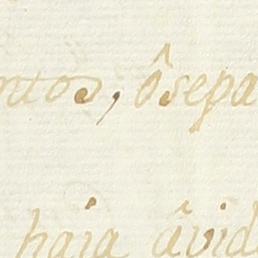 ntos, ôsepa
haja âvida